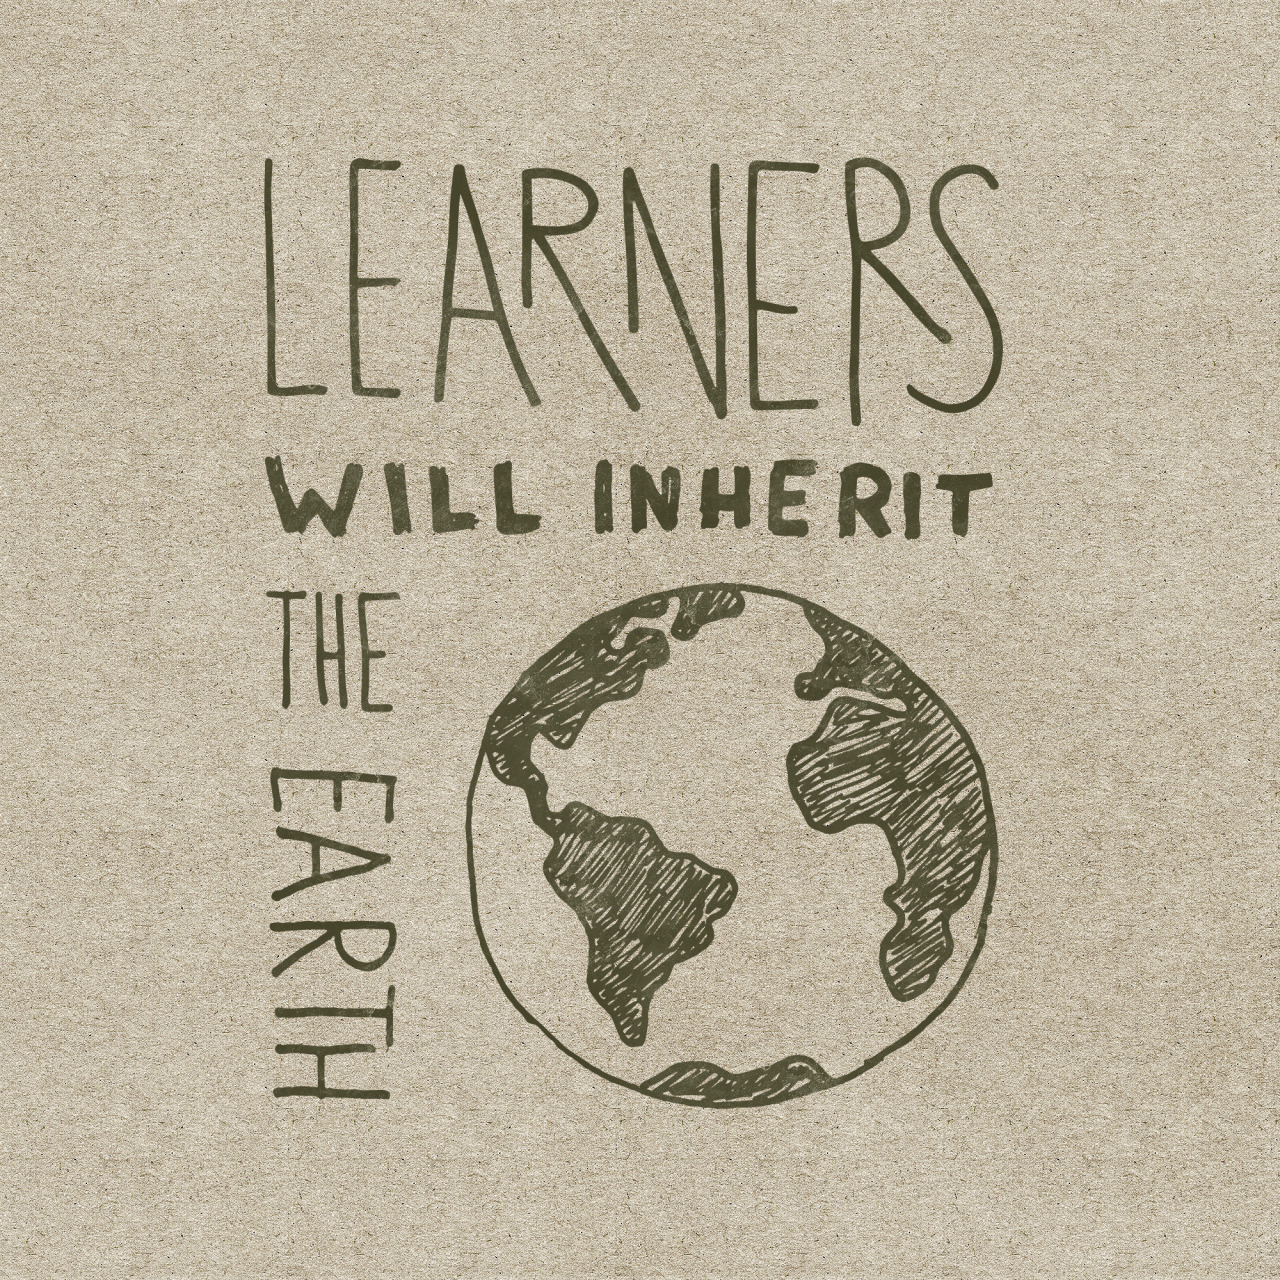 LEARNERS
WILL INHERIT
THE
EARTH